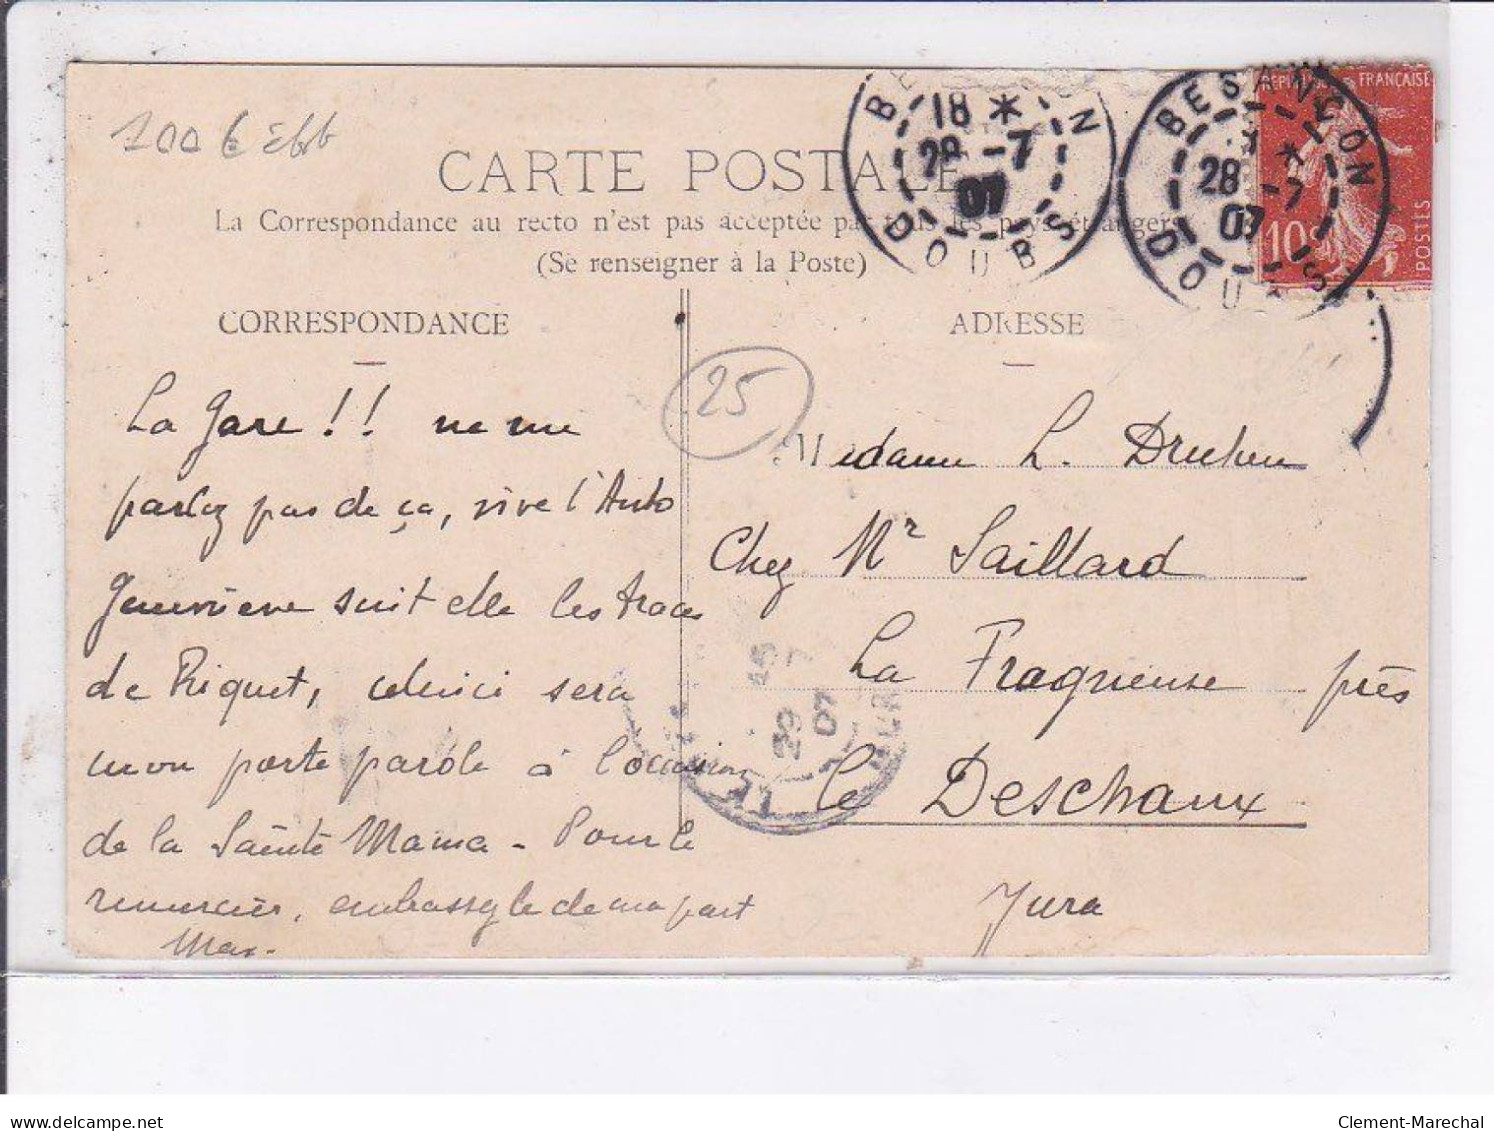 100 €
CARTE POSTALE
La Correspondance au recto n'est pas acceptée par tous les pays étrangers
(Se renseigner à la Poste)
CORRESPONDANCE
ADRESSE
BESANÇON
18 *
28 -7
07
DOUBS
BESANÇON
28 -7
07
DOUBS
FRANÇAISE
10
POSTES
25
La Gare !! ne me
parlez pas de ça, vive l'Auto
Geneviève suit elle les traces
de Riquet, celui ci sera
mon porte parole à l'occasion
de la Sainte Mama - Pour le
remercier, embassez le de ma part
Max.
Madame L.
Chez Mr Saillard
La Fragneuse près
le Deschaux
Jura
29
07
delcampe.net
Clement-Marechal